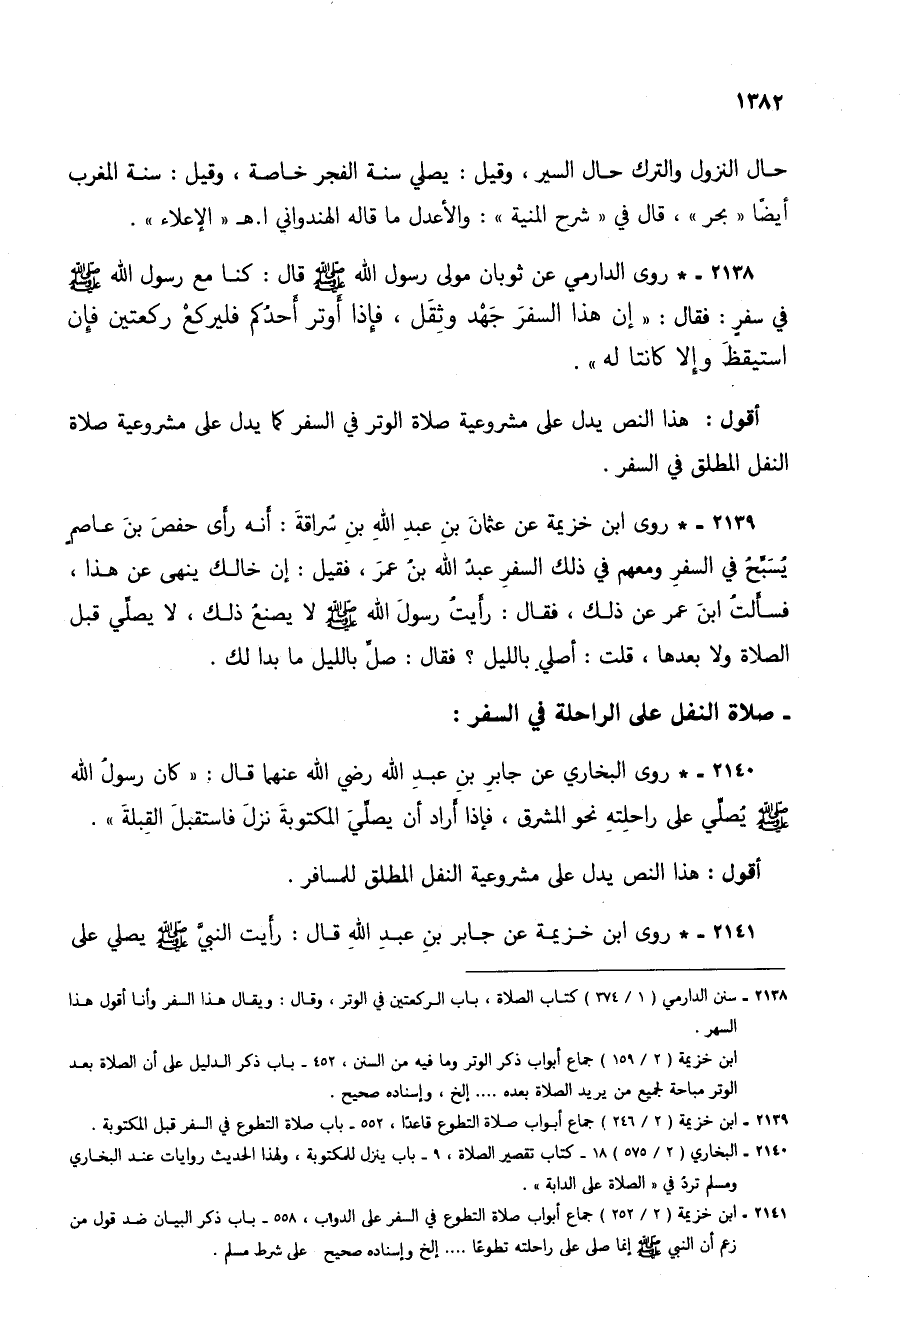 ١٣٨٢
حال النزول والترك حال السير ، وقيل : يصلي سنة الفجر خاصة ، وقيل : سنة المغرب
أيضًا « بحر » ، قال في « شرح المنية » : والأعدل ما قاله الهندواني ا.هـ « الإعلاء » .
٢١٣٨ - * روى الدارمي عن ثوبان مولى رسول الله ﷺ قال : كنا مع رسول الله ﷺ
في سفرٍ : فقال : « إن هذا السفرَ جَهْد وثِقَل ، فإذا أوتر أحدُكم فليركعْ ركعتين فإن
استيقظَ وإلا كانتا له » .
أقول : هذا النص يدل على مشروعية صلاة الوتر في السفر كما يدل على مشروعية صلاة
النفل المطلق في السفر .
٢١٣٩ - * روى ابن خزيمة عن عثمانَ بنِ عبدِ اللهِ بنِ سُراقةَ : أنه رأى حفصَ بنَ عاصمٍ
يُسَبِّحُ في السفرِ ومعهم في ذلك السفرِ عبدُ الله بنُ عمرَ ، فقيل : إن خالك ينهى عن هذا ،
فسألتُ ابنَ عمر عن ذلك ، فقال : رأيتُ رسولَ الله ﷺ لا يصنعُ ذلك ، لا يصلّي قبل
الصلاة ولا بعدها ، قلت : أصلي بالليل ؟ فقال : صلِّ بالليل ما بدا لك .
- صلاة النفل على الراحلة في السفر :
٢١٤٠ - * روى البخاري عن جابرِ بنِ عبدِ الله رضي الله عنهما قال : « كان رسولُ الله
ﷺ يُصلّي على راحلتِهِ نحو المشرق ، فإذا أراد أن يصلّيَ المكتوبةَ نزلَ فاستقبلَ القِبلةَ » .
أقول : هذا النص يدل على مشروعية النفل المطلق للمسافر .
٢١٤١ - * روى ابن خزيمة عن جابر بنِ عبدِ اللهِ قال : رأيت النبيَّ ﷺ يصلي على
٢١٣٨ - سنن الدارمي ( ١ / ٣٧٤ ) كتاب الصلاة ، باب الركعتين في الوتر ، وقال : ويقال هذا السفر وأنا أقول هذا
السهر .
ابن خزيمة ( ٢ / ١٥٩ ) جماع أبواب ذكر الوتر وما فيه من السنن ، ٤٥٢ - باب ذكر الدليل على أن الصلاة بعد
الوتر مباحة لجميع من يريد الصلاة بعده .... إلخ ، وإسناده صحيح .
٢١٣٩ - ابن خزيمة ( ٢ / ٢٤٦ ) جماع أبواب صلاة التطوع قاعدًا ، ٥٥٢ - باب صلاة التطوع في السفر قبل المكتوبة .
٢١٤٠ - البخاري ( ٢ / ٥٧٥ ) ١٨ - كتاب تقصير الصلاة ، ٩ - باب ينزل للمكتوبة ، ولهذا الحديث روايات عند البخاري
ومسلم تردُ في « الصلاة على الدابة » .
٢١٤١ - ابن خزيمة ( ٢ / ٢٥٢ ) جماع أبواب صلاة التطوع في السفر على الدواب ، ٥٥٨ - باب ذكر البيان ضد قول من
زعم أن النبي ﷺ إنما صلى على راحلته تطوعًا .... إلخ وإسناده صحيح على شرط مسلم .